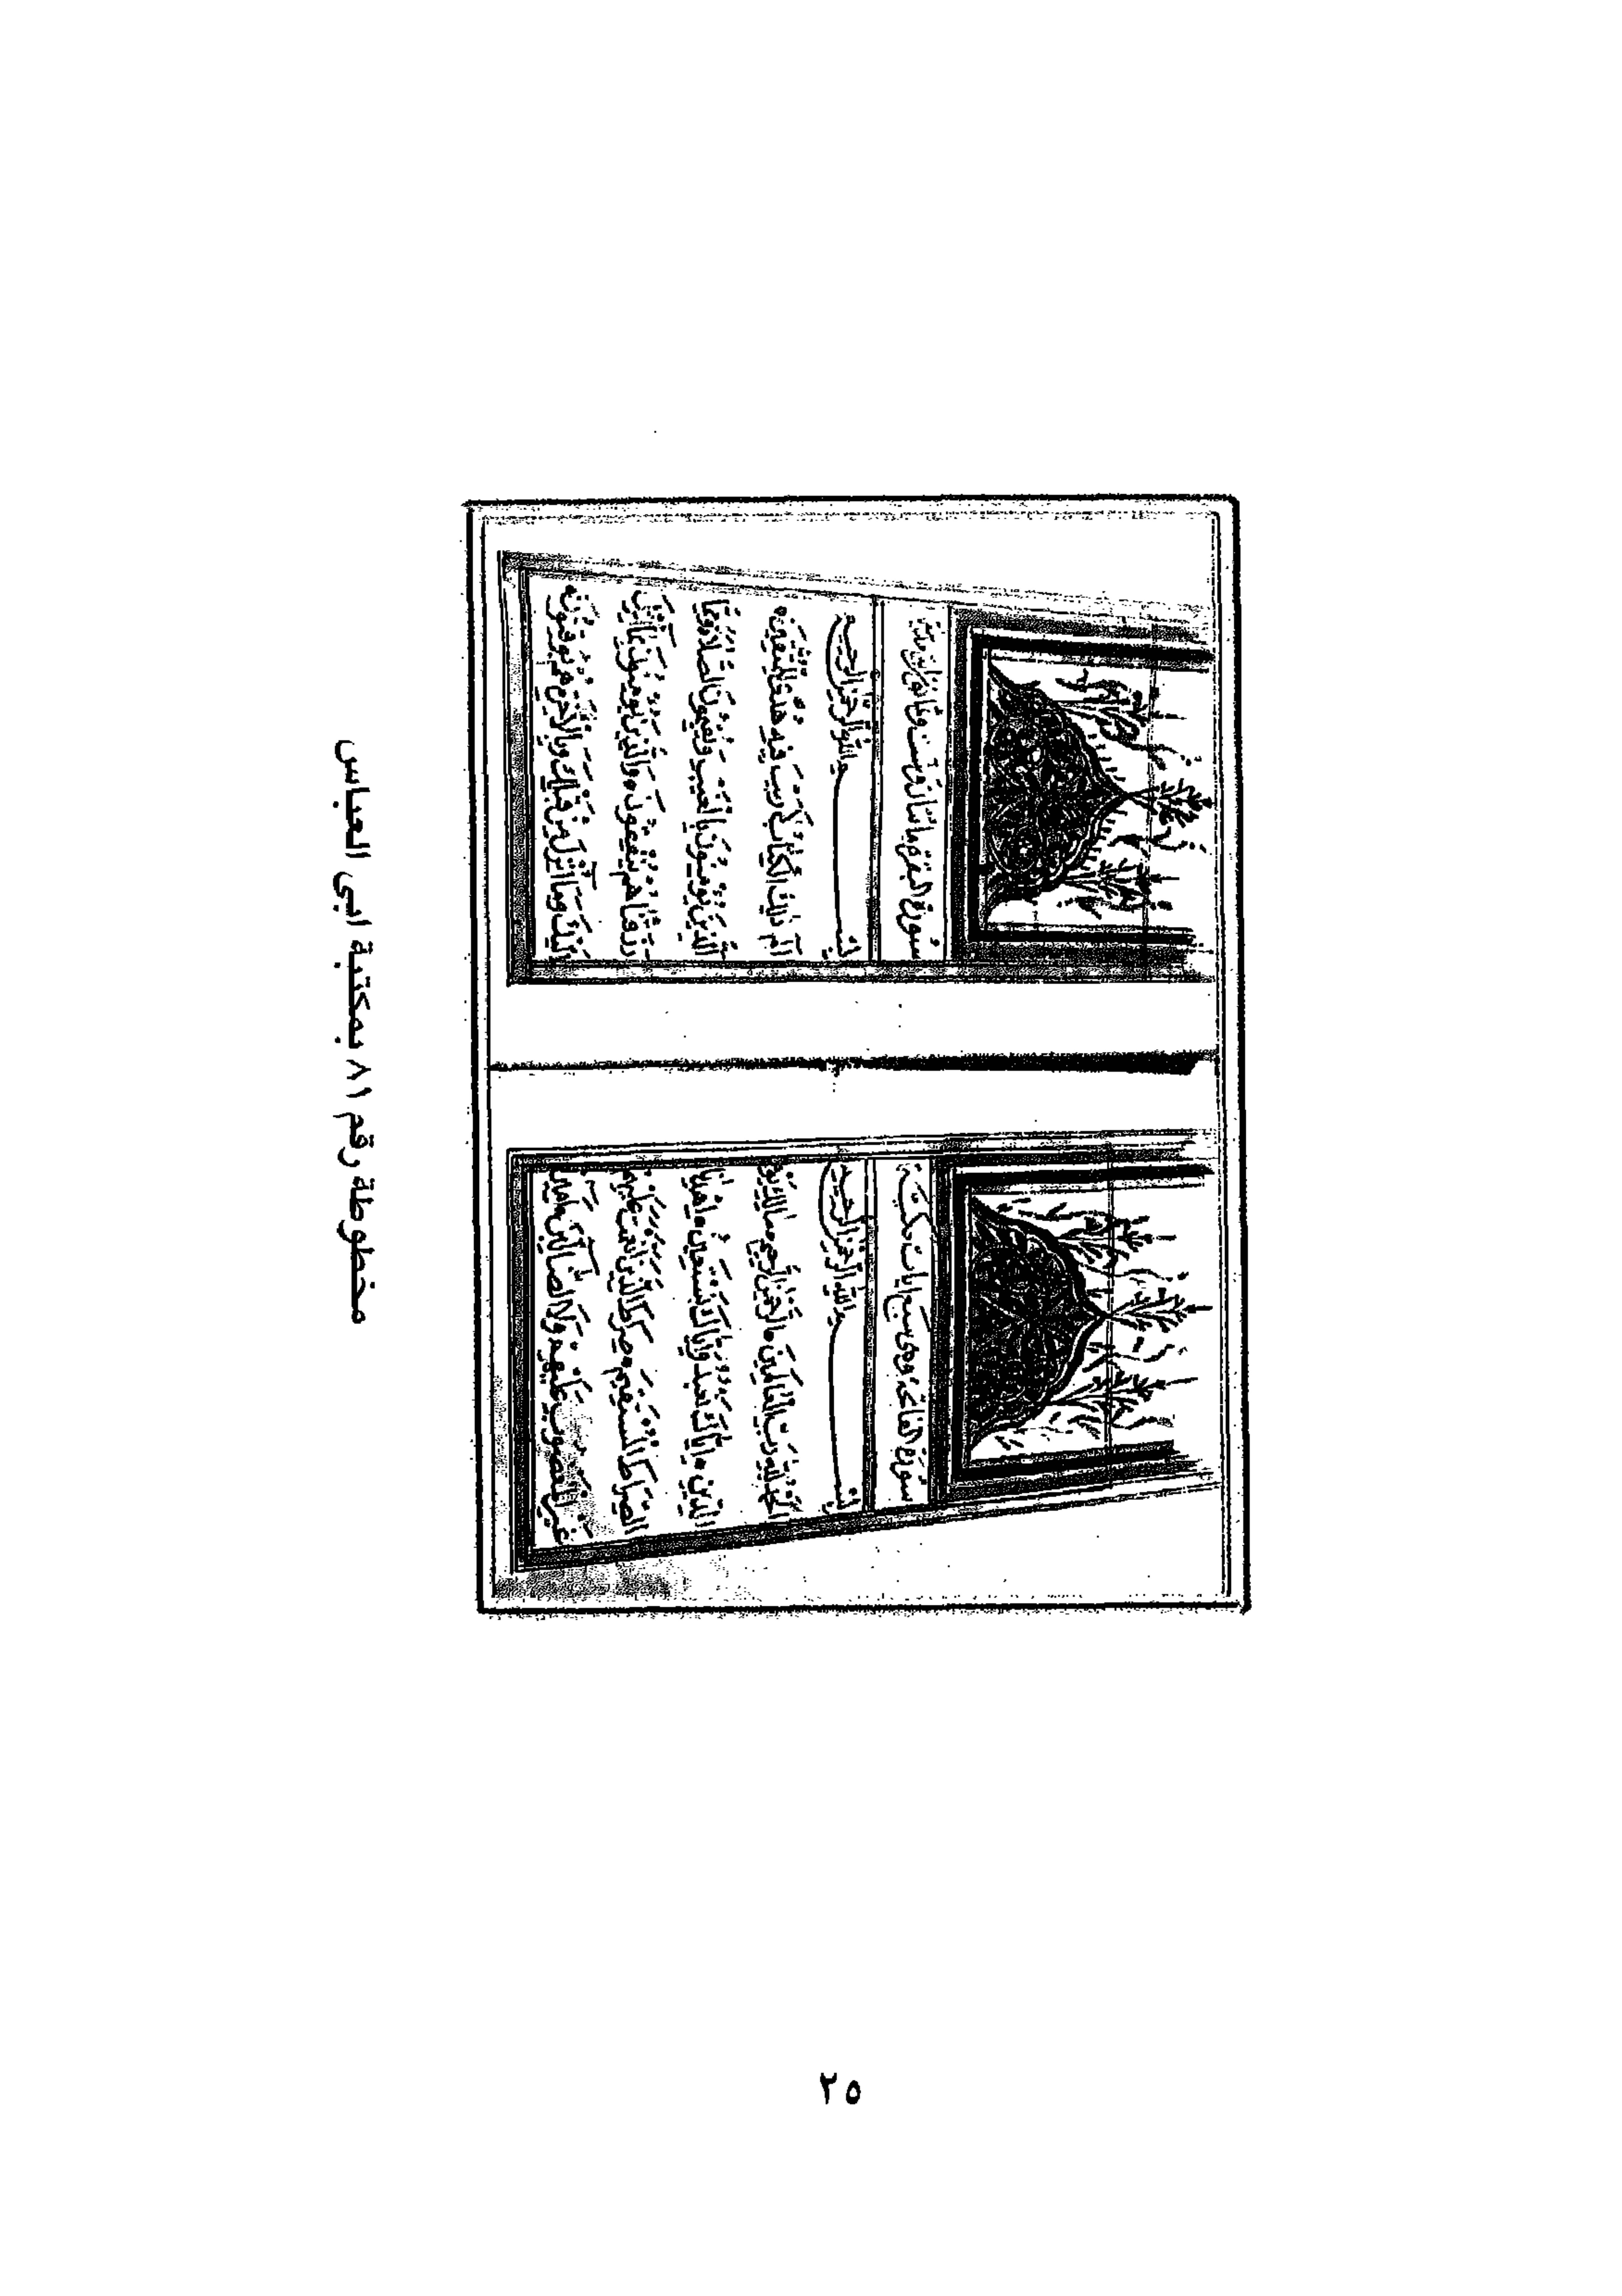 سُورَة الفاتحة وهى سبع ايات مكية
بسم الله الرحمن الرحيم
الحَمْدُ لِلّٰهِ رَبِّ العَالَمِينَ الرَّحْمٰنِ الرَّحِيمِ مَالِكِ يَوْمِ
الدِّينِ اِيَّاكَ نَعْبُدُ وَاِيَّاكَ نَسْتَعِينُ اِهْدِنَا
الصِّرَاطَ الْمُسْتَقِيمَ صِرَاطَ الَّذِينَ اَنْعَمْتَ عَلَيْهِمْ
غَيْرِ الْمَغْضُوبِ عَلَيْهِمْ وَلَا الضَّآلِّينَ اٰمين
سُورَة البقرة مائتان وست وثمانون اية
بسم الله الرحمن الرحيم
الٓمٓ ذٰلِكَ الْكِتَابُ لَا رَيْبَ فِيهِ هُدًى لِلْمُتَّقِينَ
الَّذِينَ يُؤْمِنُونَ بِالْغَيْبِ وَيُقِيمُونَ الصَّلٰوةَ وَمِمَّا
رَزَقْنَاهُمْ يُنْفِقُونَ وَالَّذِينَ يُؤْمِنُونَ بِمَآ اُنْزِلَ
اِلَيْكَ وَمَآ اُنْزِلَ مِنْ قَبْلِكَ وَبِالْاٰخِرَةِ هُمْ يُوقِنُونَ
مخطوطة رقم ٨١ بمكتبة ابى العباس
٢٥